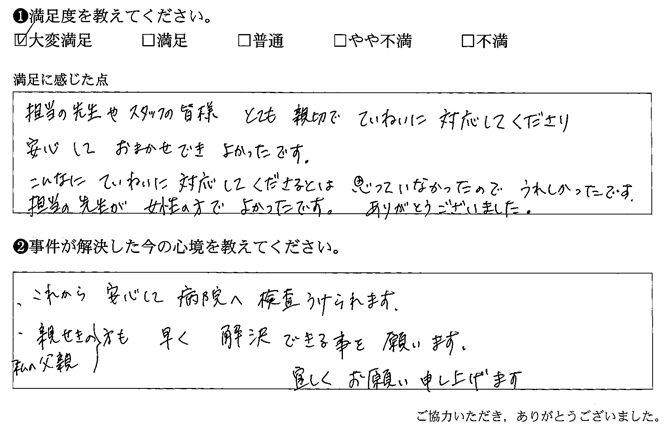 ❶満足度を教えてください。
☑大変満足 □満足 □普通 □やや不満 □不満
満足に感じた点
担当の先生やスタッフの皆様 とても 親切で ていねいに 対応してくださり
安心 して おまかせでき よかったです。
こんなに ていねいに 対応してくださるとは 思っていなかったので うれしかったです。
担当の先生が 女性の方で よかったです。 ありがとうございました。
❷事件が解決した今の心境を教えてください。
、これから 安心して 病院へ 検査うけられます。
・親せきの方も 早く 解決できる事を 願います。
私の父親
宜しく お願い 申し上げます
ご協力いただき，ありがとうございました。